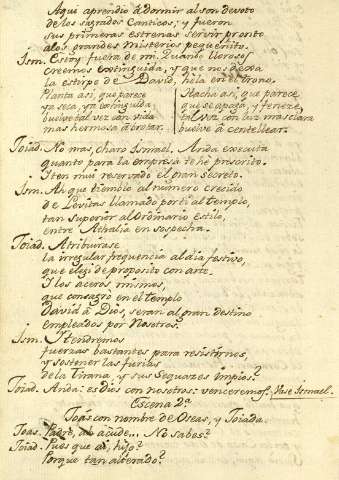 Aqui aprendió à dormir al son devoto
de los sagrados Canticos; y fueron
sus primeras estrenas servir pronto
a los grandes misterios pequeñito.
Ism. Estoy fuera de mi. Quando llorosos
creemos extinguida, y que no dexa
la estirpe de David, hela en el trono.
Planta asi, que parece
ya seca, ya extinguida,
buelve tal vez con vida
mas hermosa à brotar.
Hacha asi, que parece
que se apaga, y fenece,
tal vez con luz mas clara
buelve à centellear.
Toiad. No mas, charo Ismael. Anda executa
quanto para la empresa te hé prescrito.
I ten mui reservado el gran secreto.
Ism. Ah que tiemblo al número crecido
de Levitas llamado por ti al templo,
tan superior al Ordinario estilo,
entre Athalia en sospecha.
Toiad. Atribuirase
la irregular frequencia al dia festivo,
que elegi de proposito con arte.
I los aceros mismos,
que consagró en el templo
David à Dios, seran al gran destino
empleados por Nosotros.
Ism. I tendremos
fuerzas bastantes para resistirnos,
y sostener las furias
de la Tirana, y sus Sequazes impios?
Toiad. Anda: es Dios con nosotros: venceremos. Vase Ismael.
Escena 2ª
Ioas con nombre de Oseas, y Toiada.
Ioas. Padre, acude... No sabes?
Toiad. Pues que ai, hijo?
Porque tan alterado?